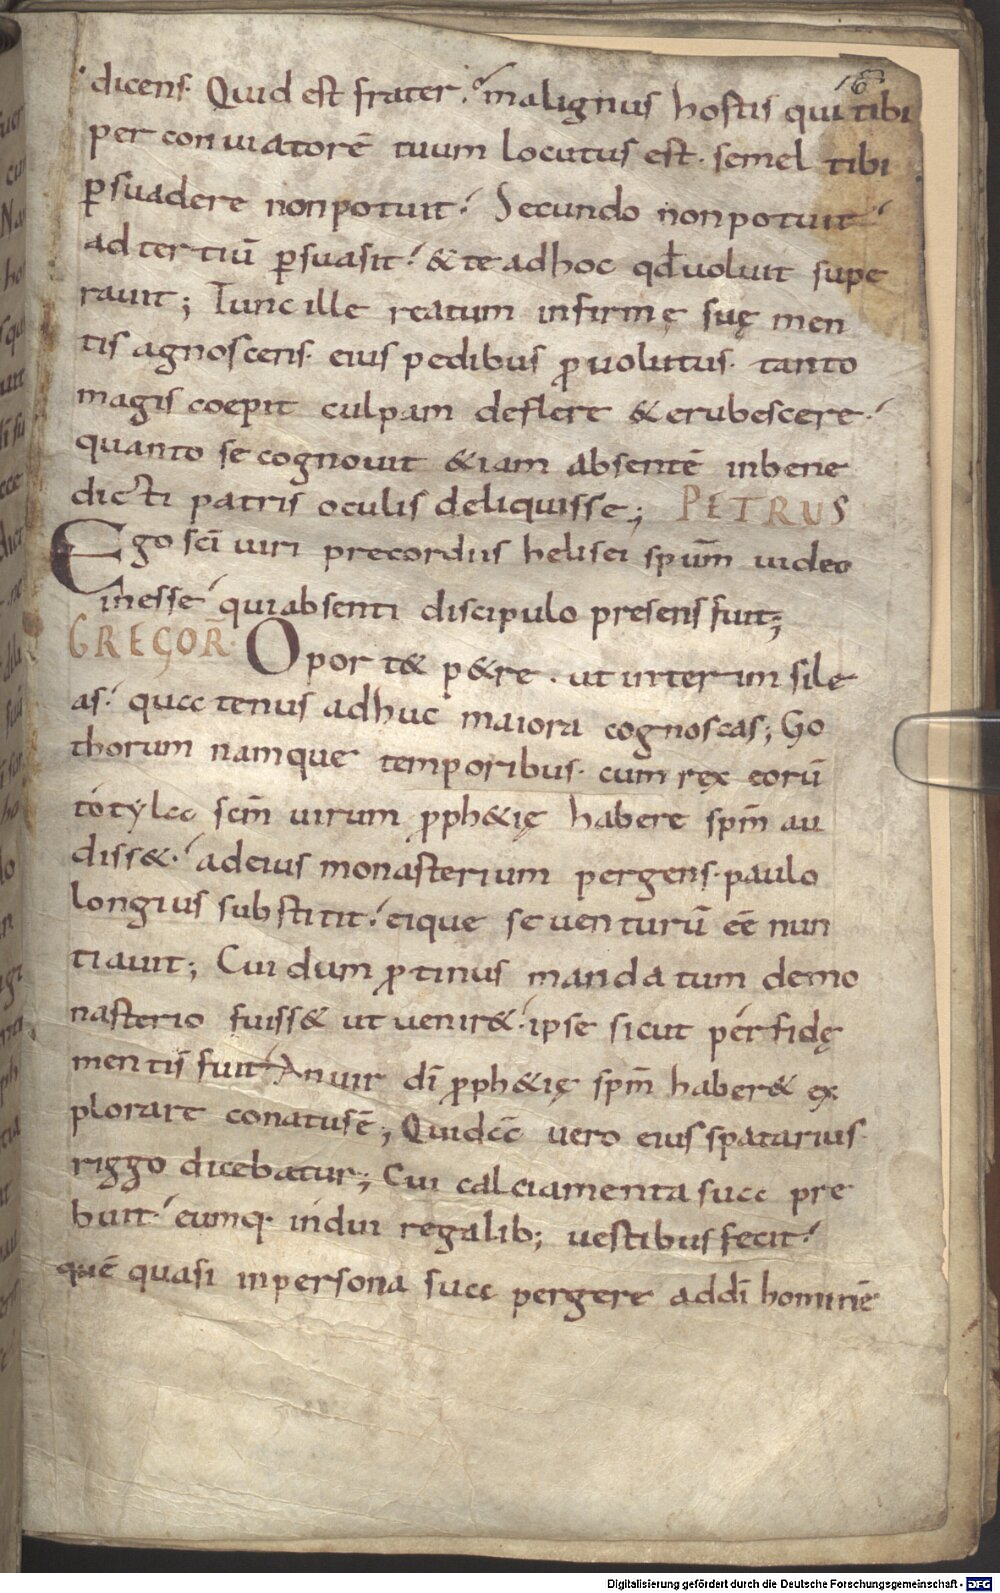 16
dicens. Quid est frater? malignus hostis qui tibi
per conuiatorē tuum locutus est. semel tibi
ꝑsuadere non potuit. Secundo non potuit
ad tertiū ꝑsuasit. & te ad hoc qđ uoluit supe
rauit; Tunc ille reatum infirmę suę men
tis agnoscens. eius pedibus ꝓuolutus. tanto
magis coepit culpam deflere & erubescere.
quanto se cognouit &iam absentē in bene
dicti patris oculis deliquisse; PETRUS
Ego sc̄i uiri precordiis helisei sp̄um uideo
inesse qui absenti discipulo presens fuit;
GREGOR̄. Oport& p&re. ut interim sile
as. quatenus adhuc maiora cognoscas; Go
thorum namque temporibus. cum rex eorū
totyla sc̄m uirum ꝓph&ię habere sp̄m au
diss&. ad eius monasterium pergens. paulo
longius substitit. eique se uenturū eē nun
tiauit; Cui dum ꝓtinus mandatum de mo
nasterio fuiss& ut uenir&. ipse sicut perfidę
mentis fuit An uir dī ꝓph&ię sp̄m haber& ex
plorare conatus ē; Quidā uero eius spatarius
riggo dicebatur; Cui calciamenta sua pre
buit. eumq. indui regalib; uestibus fecit.
quē quasi in persona sua pergere ad dī hominē
Digitalisierung gefördert durch die Deutsche Forschungsgemeinschaft - DFG